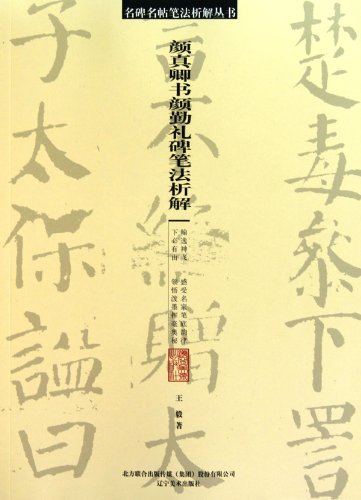 名碑名帖笔法析解丛书
楚毒叅下詈
言不絶贈太
子太保謚曰
颜真卿书颜勤礼碑笔法析解
翰逸神飞 感受名家笔底韵律
下必有由 领悟泼墨挥毫奥秘
王毅 著
北方联合出版传媒（集团）股份有限公司
辽宁美术出版社